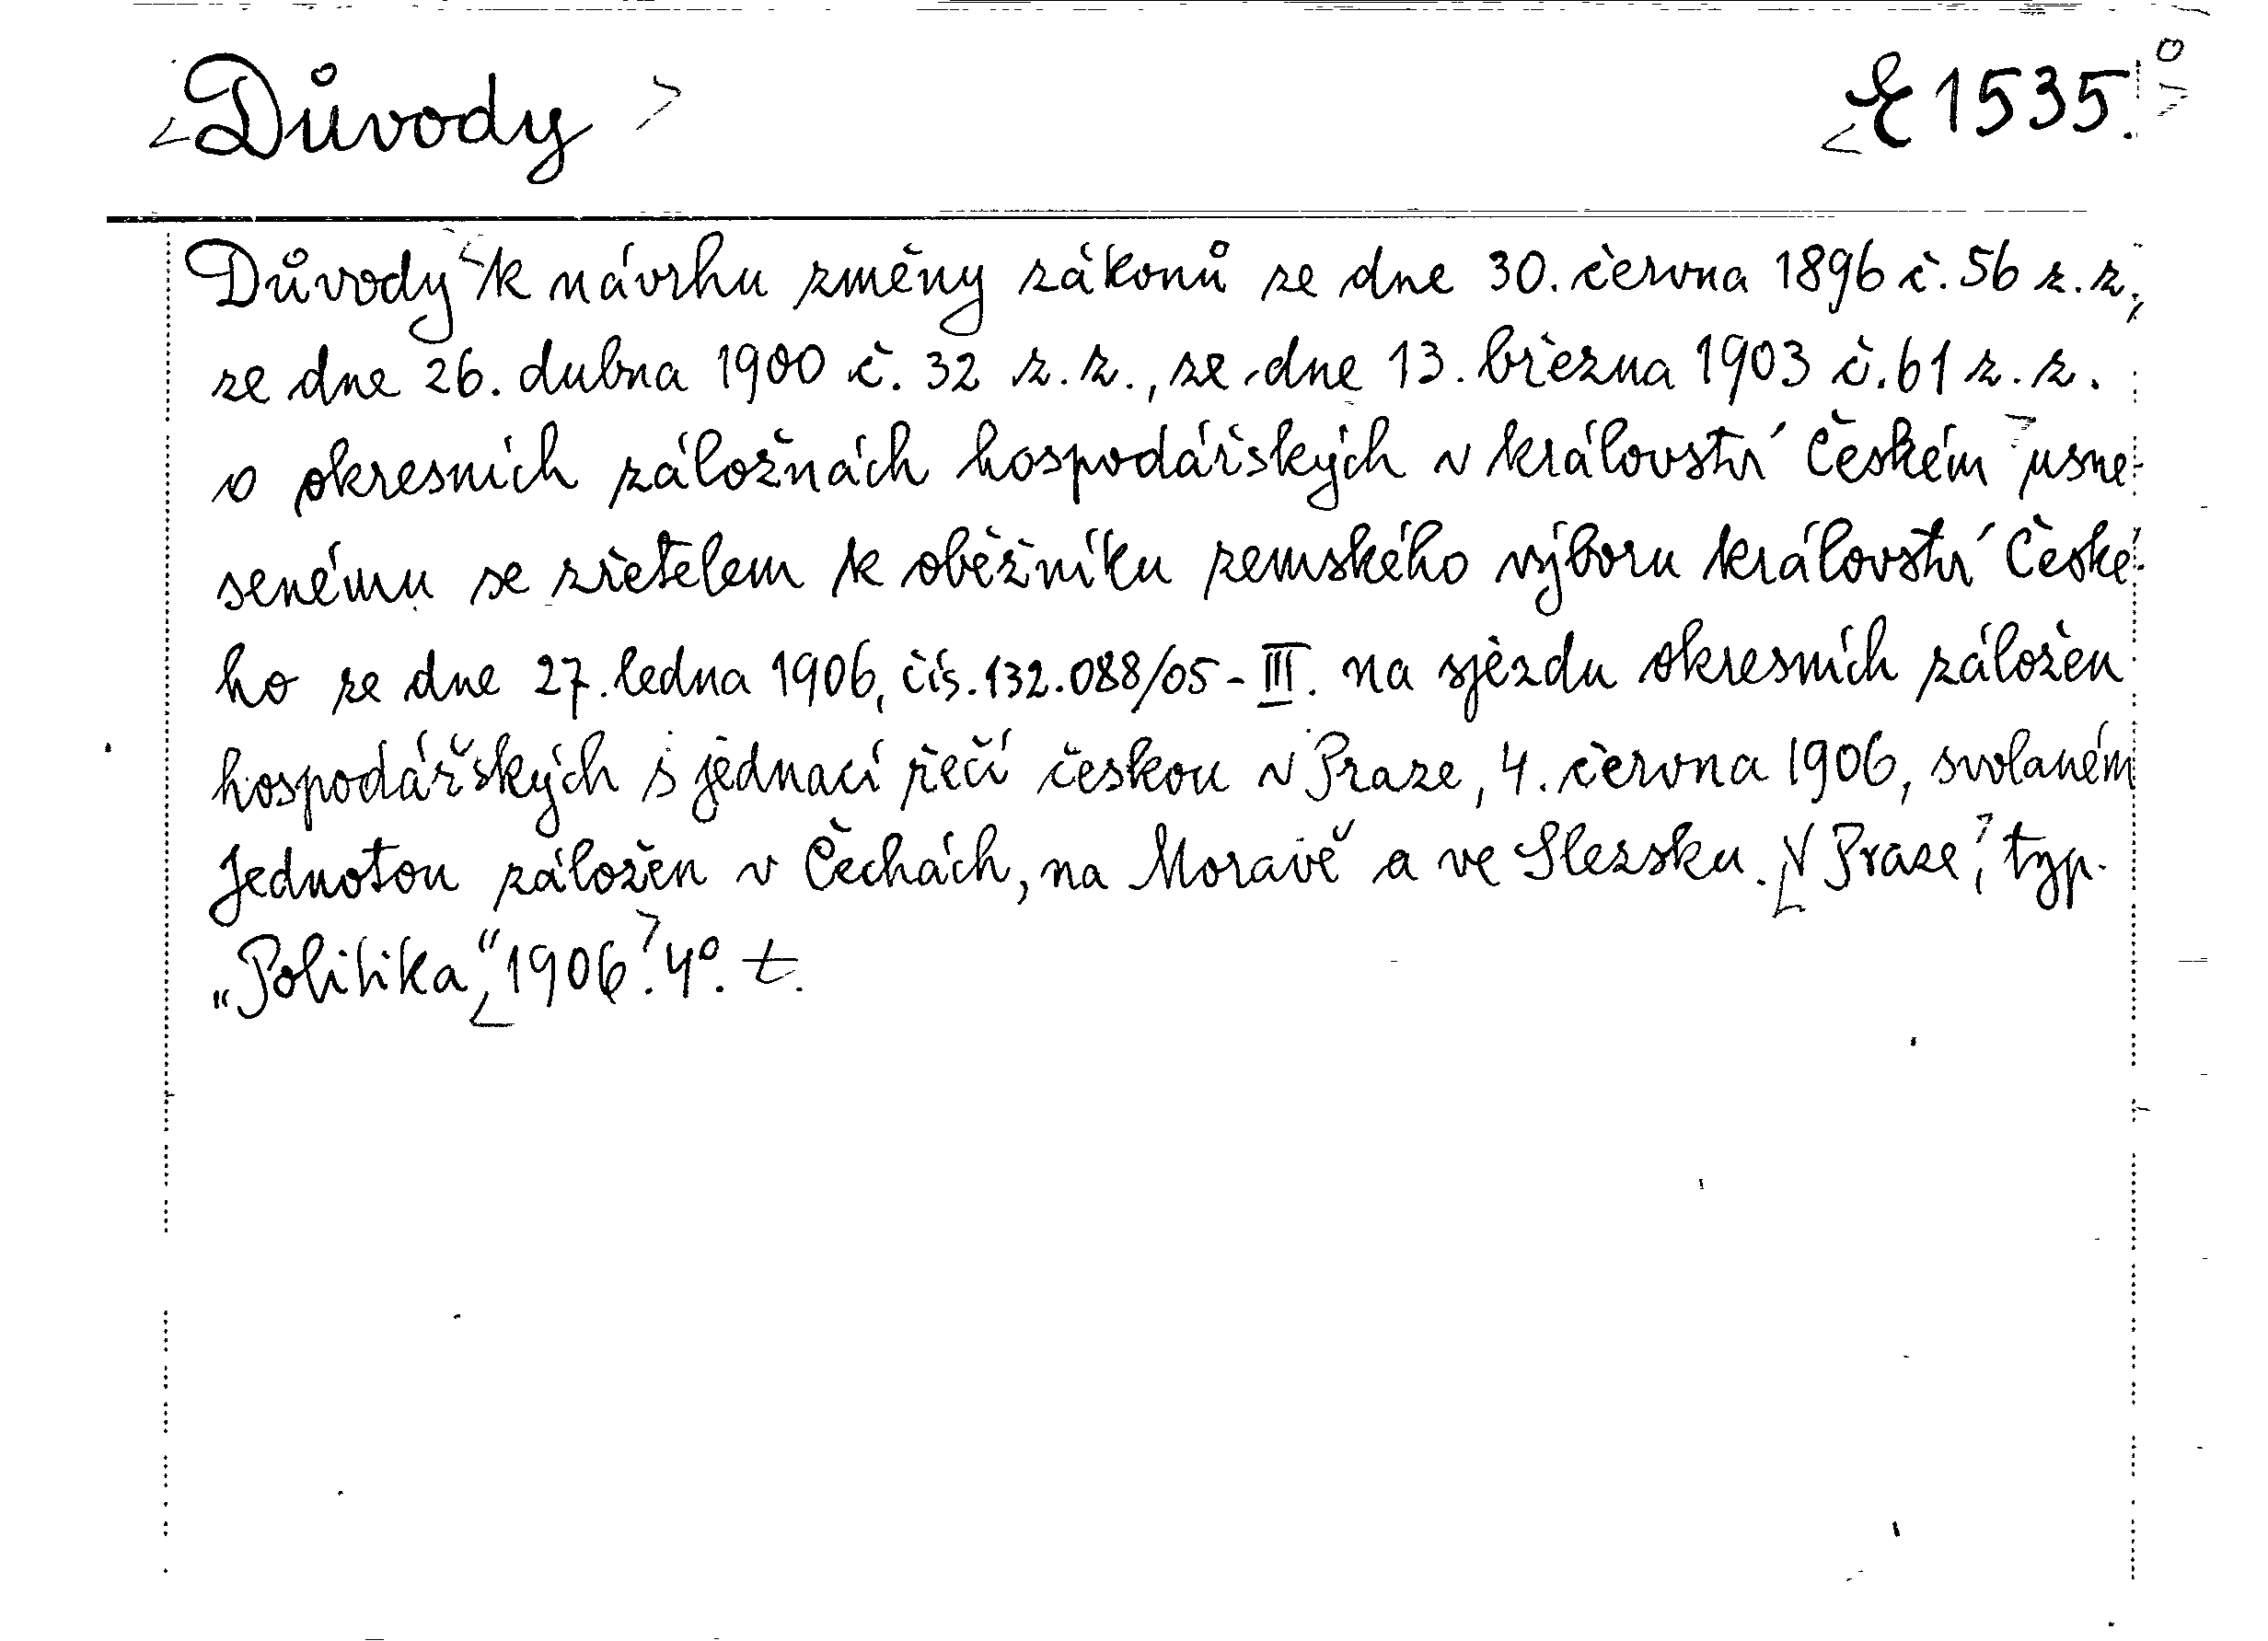 Důvody E 1535.
Důvody k návrhu změny zákonů ze dne 30. června 1896 č. 56 z. z.,
ze dne 26. dubna 1900 č. 32 z. z., ze dne 13. března 1903 č. 61 z. z.
o okresních záložnách hospodářských v království Českém usne-
senému se zřetelem k oběžníku zemského výboru království České-
ho ze dne 27. ledna 1906, čís. 132.088/05 - III. na sjezdu okresních záložen
hospodářských s jednací řečí českou v Praze, 4. června 1906, svolaném
Jednotou záložen v Čechách, na Moravě a ve Slezsku. V Praze, typ.
„Politika," 1906. 4°. t.